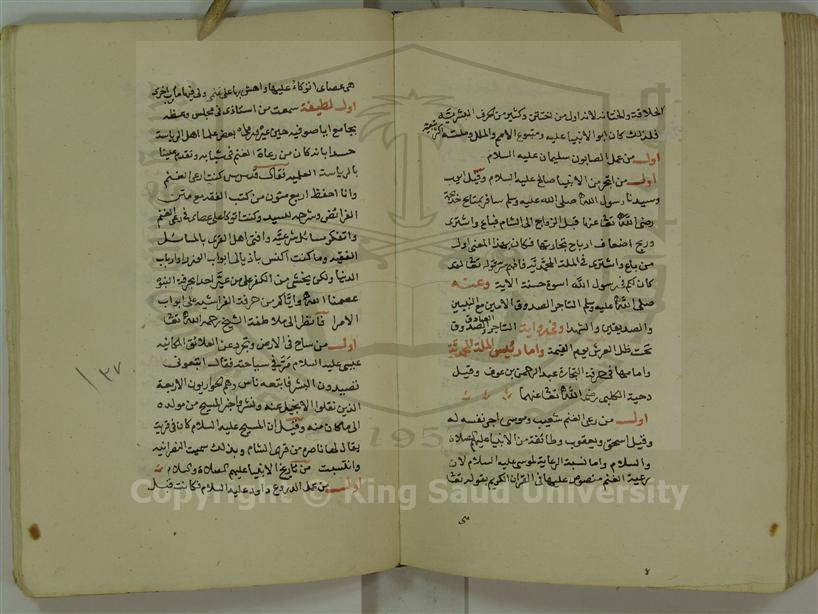 الحلاقة والختانه لانه اول من اختتن وكثير من الحرف البشريته
فلذلك كان ابو الانبيا عليه ومتبوع الامم والملل وملته
اول من عمل الصابون سليمان عليه السلام
اول من اتجر من الانبيا صالح عليه السلام وقيل ايوب
وسيدنا رسول الله صلى الله عليه وسلم سافر بمتاع خديجة
رضى الله تعا عنها قبل الزواج الى الشام فباع واشترى
وربح اضعاف ارباح تجارتها فكان بهذا المعنى اول
من باع واشترى فى الملة المحمدية فافهم سر قوله تعا لقد
كان لكم فى رسول الله اسوة حسنة الاية وعنه
صلى الله عليه وسلم التاجر الصدوق الامين مع النبيين
والصديقين والشهدا وفى رواية التاجر الصدوق
الصادق
تحت ظل العرش يوم القيمة واما رئيس الملة المحمدية
وامامها فى حرفة التجارة عبد الرحمن بن عوف وقيل
دحية الكلبى رضى الله تعا عنهما
اول من رعى الغنم شعيب وموسى اجر نفسه له
وقيل اسحق ويعقوب وطائفة من الانبيا عليهم الصلاة
والسلام واما نسبة الرعاية لموسى عليه السلام لان
رعية الغنم منصوص عليها فى القران الكريم بقوله تعا
هى
هى عصاى اتوكاء عليها واهش بها على غنمى ولى فيها مآرب اخرى
اول لطيفة سمعت من استاذى فى مجلس وعظه
بجامع ايا صوفيه حين عيره بعض علما اهل الرياسة
حسدا بانه كان من رعاة الغنم فى شبابه وتقدم علينا
بالرياسة العلميه فقال كنت ارعى الغنم
وانا احفظ اربع متون من كتب الفقه مع متن
الفرائض وشرحه للسيد وكنت اتوكاء على عصاى فى رعى الغنم
واتفكر مسائل شرعية وافتى اهل القرى بالمسائل
الفقهيه وما كنت اكنس باذيالى ابواب الوزرا وارباب
الدنيا ولكن يخشى من الكفر على من عير احدا بحرفة النبوة
عصمنا الله واياكم من حرفة الفراشيه على ابواب
الامرا فانظر الى ملاطفة الشيخ رحمه الله تعا
اول من ساح فى الارض وتجرد عن العلائق المكانيه
عيسى عليه السلام مر فى سياحته فقال اتبعونى
نصيدون البشر فاتبعه ناس وهم الحواريون الاربعة
الذين نقلوا الانجيل عنه ونشروا خبر المسيح من مولده
الى ماكان منه وقيل ان المسيح عليه السلام كان فى قرية
يقال لها ناصره من قرى الشام وبذلك سميت النصرانيه
وانتسبت من تاريخ الانبيا عليهم الصلاة والسلام
اول من عمل الدروع داود عليه السلام فكانت قبل
Copyright © King Saud University
1957